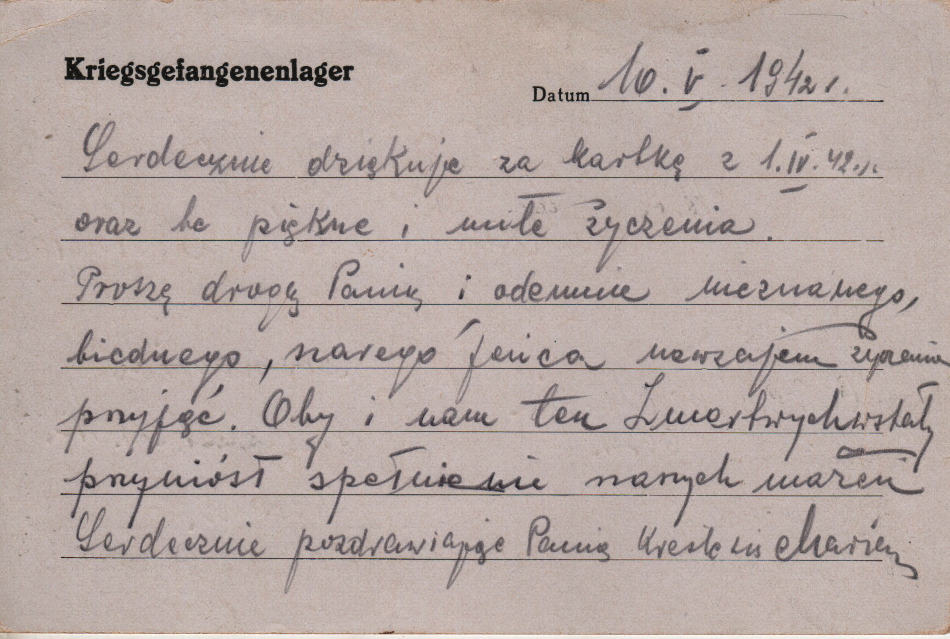 Kriegsgefangenenlager
Datum 10. V. 1942 r.
Serdecznie dziękuję za kartkę z 1.IV.42.r.
oraz be piękne i miłe życzenia.
Proszę drogę Panią i odemnie nieznanego,
biednego, szarego jeńca nawzajem życzenia
przyjąć. Oby i nam ten Zmartwychwstały
przyniósł spełnienie naszych marzeń
Serdecznie pozdrawiając Panią kreślę się Marian